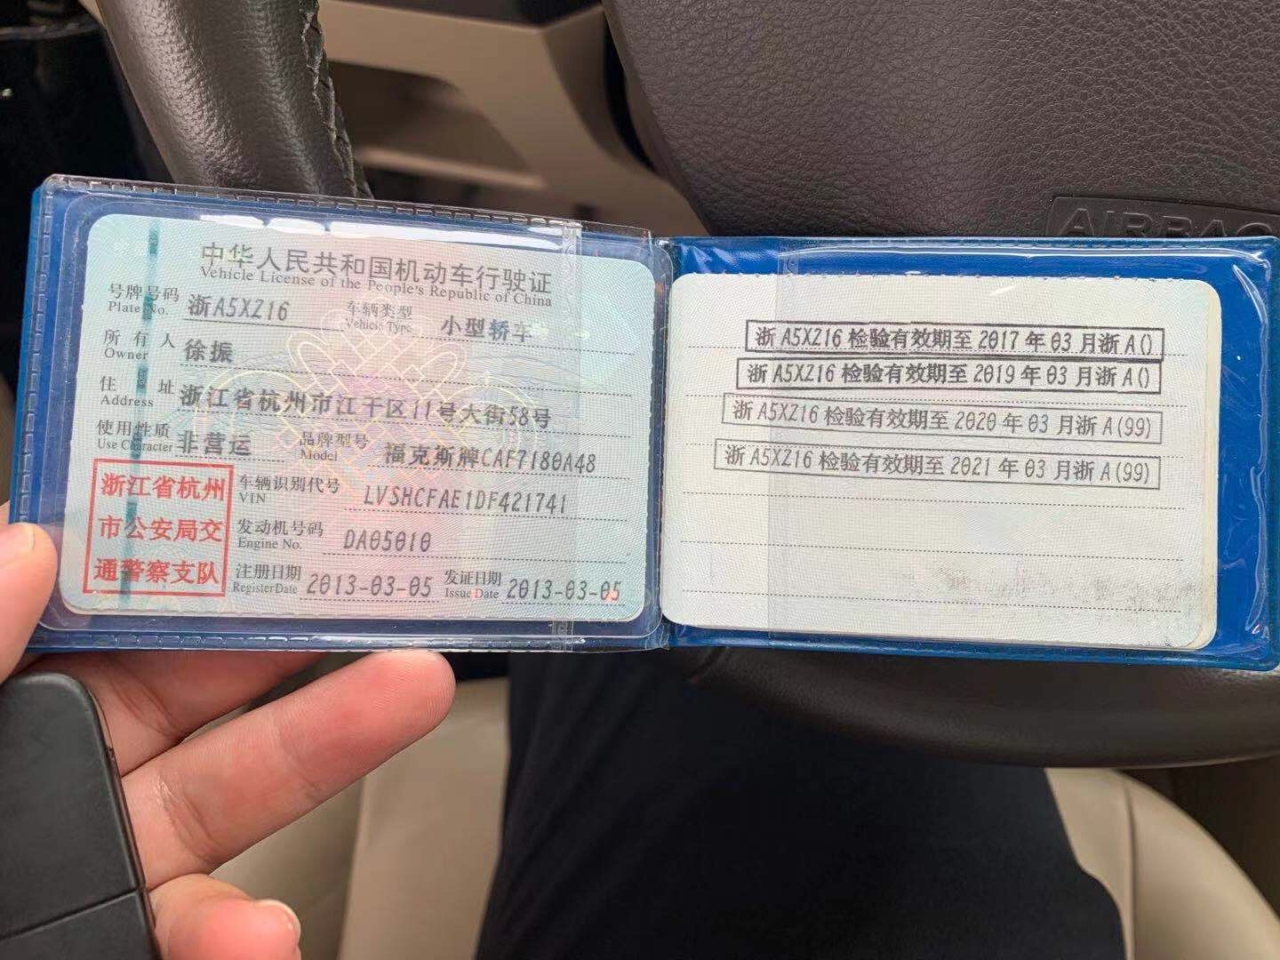 AIRBAG
中华人民共和国机动车行驶证
Vehicle License of the People's Republic of China
号牌号码 浙A5XZ16 车辆类型 小型轿车
Plate No. Vehicle Type
所有人 徐振
Owner
住址 浙江省杭州市江干区11号大街58号
Address
使用性质 非营运 品牌型号 福克斯牌CAF7180A48
Use Character Model
浙江省杭州
市公安局交
通警察支队
车辆识别代号 LVSHCFAE1DF421741
VIN
发动机号码 DA05010
Engine No.
注册日期 2013-03-05 发证日期 2013-03-05
Register Date Issue Date
浙A5XZ16 检验有效期至 2017 年 03 月浙A()
浙A5XZ16 检验有效期至 2019 年 03 月浙A()
浙A5XZ16 检验有效期至 2020 年 03 月浙A(99)
浙A5XZ16 检验有效期至 2021 年 03 月浙A(99)